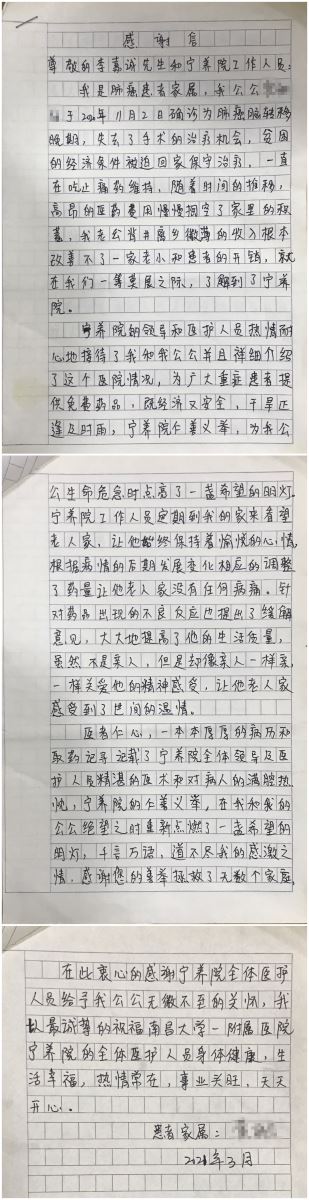 感谢信
尊敬的李嘉诚先生和宁养院工作人员：
我是肺癌患者家属，我公公
于2020年11月2日确诊为肺癌脑转移
晚期，失去了手术的治疗机会，贫困
的经济条件被迫回家保守治疗，一直
在吃止痛药维持，随着时间的推移，
高昂的医药费用慢慢掏空了家里的积
蓄，我老公背井离乡微薄的收入根本
改善不了一家老小和患者的开销，就
在我们一筹莫展之际，了解到了宁养
院。
宁养院的领导和医护人员热情耐
心地接待了我和我公公并且详细介绍
了这个医院情况，为广大重症患者提
供免费药品，既经济又安全，干旱正
逢及时雨，宁养院仁善义举，为我公
公生命危急时点亮了一盏希望的明灯。
宁养院工作人员定期到我的家来看望
老人家，让他始终保持着愉悦的心情，
根据病情的后期发展变化相应的调整
了药量让他老人家没有任何病痛。针
对药品出现的不良反应也提出了缓解
意见，大大地提高了他的生活质量，
虽然不是亲人，但是却像亲人一样亲，
一样关爱他的精神感受，让他老人家
感受到了世间的温情。
医者仁心，一本本厚厚的病历和
取药记录记载了宁养院全体领导及医
护人员精湛的医术和对病人的满腔热
忱，宁养院的仁善义举，在我和我的
公公绝望之时重新点燃了一盏希望的
明灯，千言万语，道不尽我的感激之
情，感谢您的善举拯救了无数个家庭，
在此衷心的感谢宁养院全体医护
人员给予我公公无微不至的关怀，我
以最诚挚的祝福南昌大学一附属医院
宁养院的全体医护人员身体健康，生
活幸福，热情常在，事业兴旺，天天
开心。
患者家属：
2021年3月